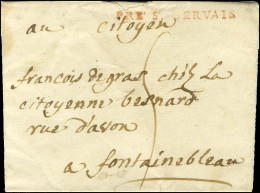 PRÉ S. GERVAIS
au citoyen
francois degras chéz La
citoyenne besnard
rue d'avon
a fontainebleau
5